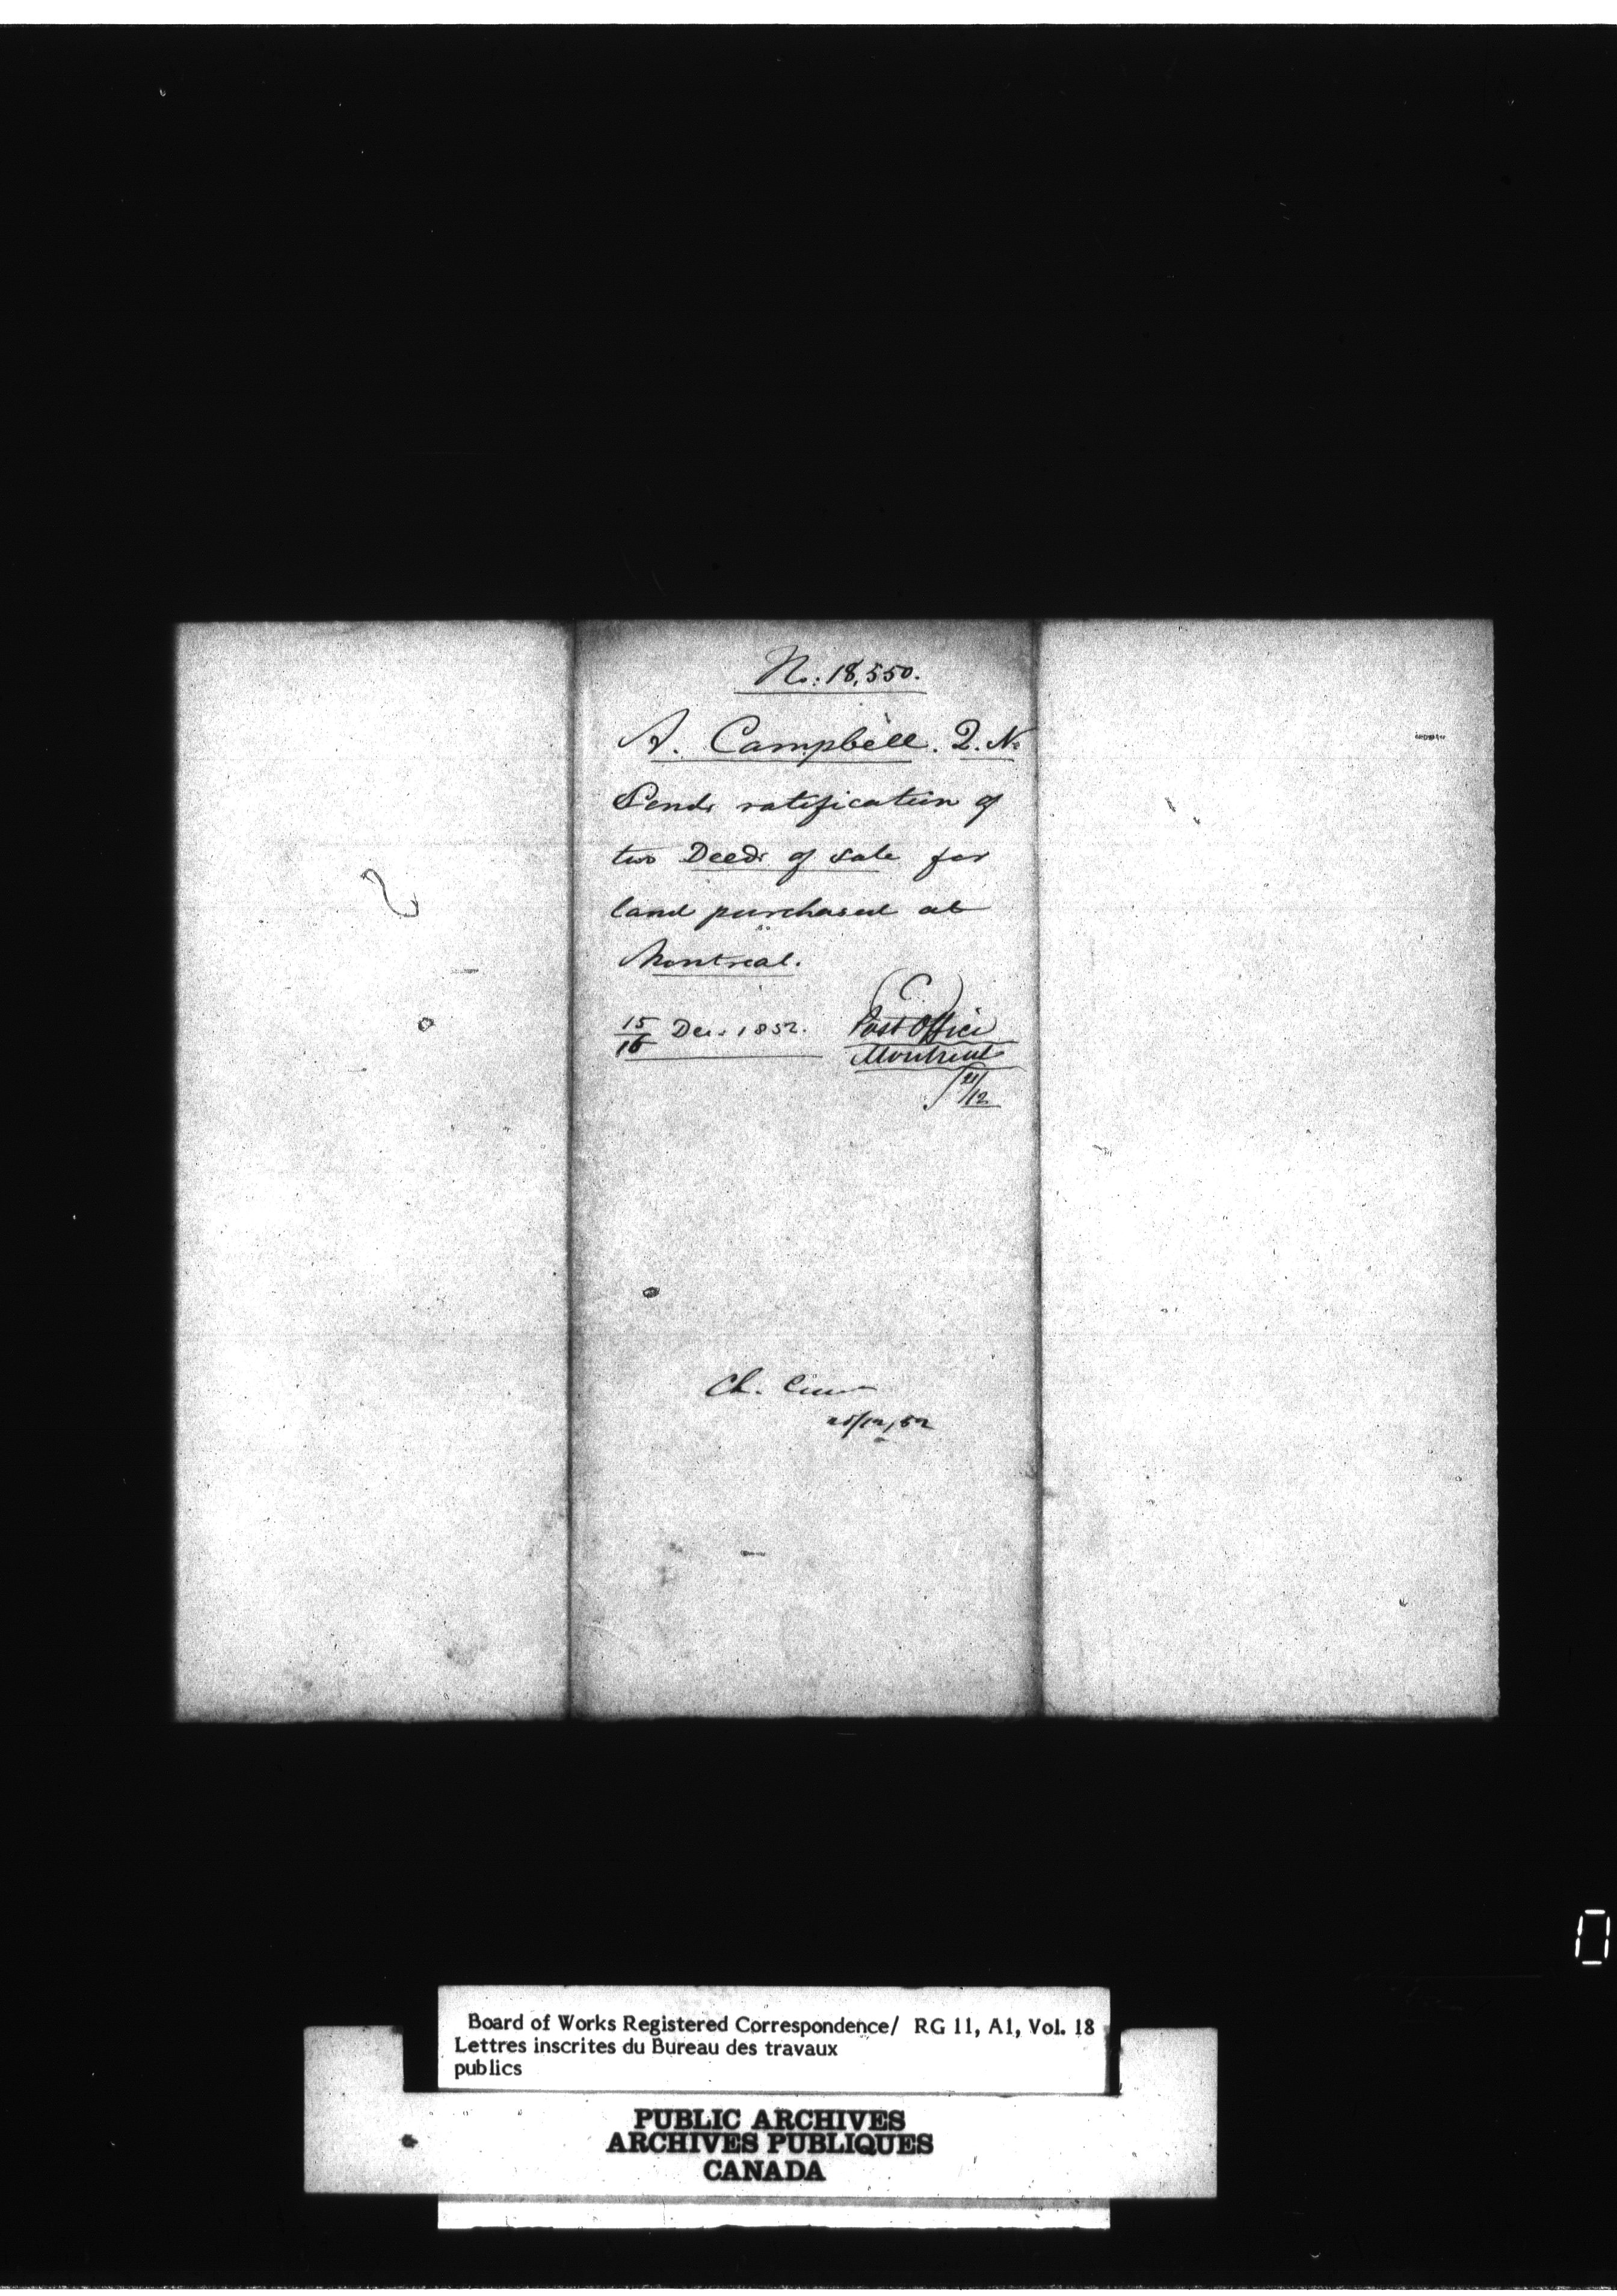 No: 18,550.
A. Campbell. 2. No
Sends ratification of
two Deeds of Sale for
land purchased at
Montreal.
15/16 Dec. 1852.
(C)
Post Office
Montreal
21/12
Ch.
25/12/52
Board of Works Registered Correspondence/ RG 11, A1, Vol. 18
Lettres inscrites du Bureau des travaux
publics
PUBLIC ARCHIVES
ARCHIVES PUBLIQUES
CANADA